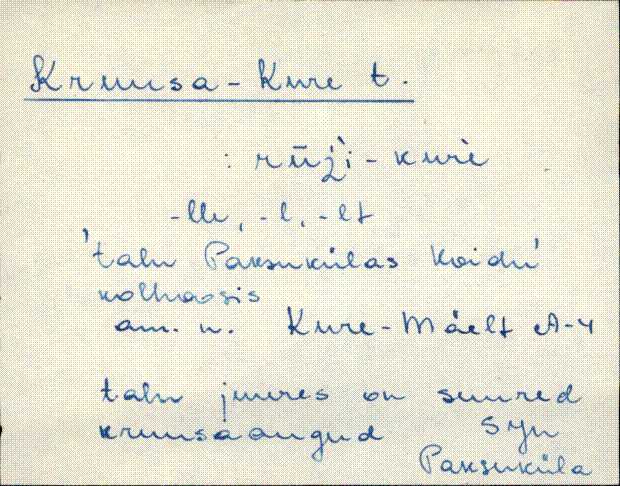 Kruusa-Kure t.
: rūʒ̀i-kurè
-lle, -l, -lt
'talu Paksukülas Koidu'
kolhoosis
am. n. Kure-Mäelt A-4
talu juures on suured
kruusaaugud Syn
Paksuküla